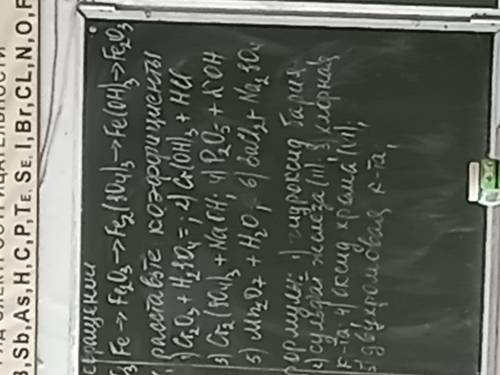 B,Sb,As,H,C,P,Te,Se,I,Br,Cl,N,O,F
Fe → Fe₂O₃ → Fe₂(SO₄)₃ → Fe(OH)₃ → Fe₂O₃
расставьте коэффициенты
1) Cr₂O₃ + H₂SO₄ =, 2) Cr(OH)₃ + HCl
3) Cr₂(SO₄)₃ + NaOH, 4) P₂O₅ + KOH
5) Mn₂O₇ + H₂O, 6) BaCl₂ + Na₂SO₄
1) гидроксид бария
2) сульфат железа (III), 3) хлорная
к-та 4) оксид хрома (VI),
5) двухромовая к-та,